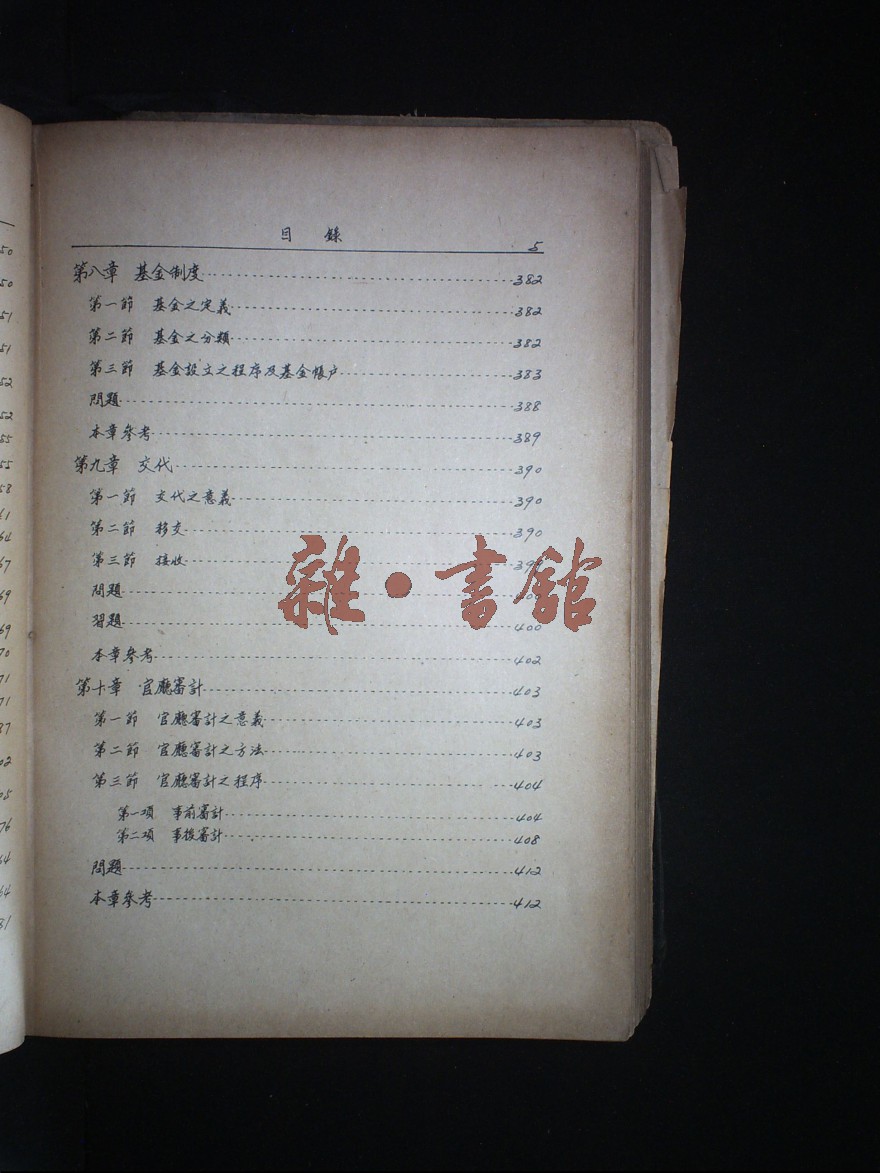 目錄 5
第八章 基金制度 382
第一節 基金之定義 382
第二節 基金之分類 382
第三節 基金設立之程序及基金帳户 383
問題 388
本章參考 389
第九章 交代 390
第一節 交代之意義 390
第二節 移交 390
第三節 接收
問題
習題 400
本章參考 402
第十章 官廳審計 403
第一節 官廳審計之意義 403
第二節 官廳審計之方法 403
第三節 官廳審計之程序 404
第一項 事前審計 404
第二項 事後審計 408
問題 412
本章參考 412
雜·書館